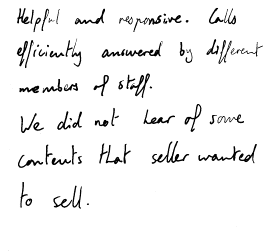 Helpful and responsive. Calls
efficiently answered by different
members of staff.
We did not hear of some
contents that seller wanted
to sell.